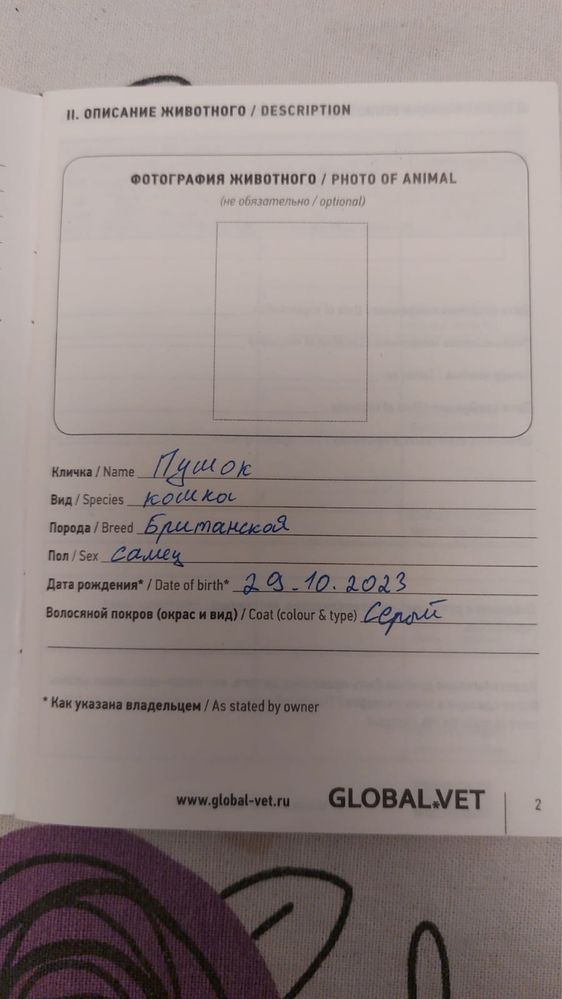 II. ОПИСАНИЕ ЖИВОТНОГО / DESCRIPTION
ФОТОГРАФИЯ ЖИВОТНОГО / PHOTO OF ANIMAL
(не обязательно / optional)
Кличка / Name Пушок
Вид / Species кошка
Порода / Breed Британская
Пол / Sex самец
Дата рождения* / Date of birth* 29.10.2023
Волосяной покров (окрас и вид) / Coat (colour & type) Серый
* Как указана владельцем / As stated by owner
www.global-vet.ru GLOBAL.VET 2